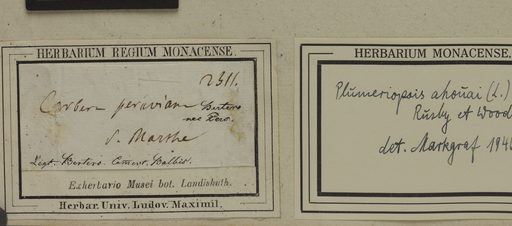 HERBARIUM REGIUM MONACENSE.
2311.
Cerbera peruviana Bertero
nec Pers.
S. Marthe
Legit. Bertero. Commun. Balbis.
Exherbario Musei bot. Landishuth.
Herbar. Univ. Ludov. Maximil.
HERBARIUM MONACENSE.
Plumeriopsis ahouai (L.)
Rusby et Wood
det. Markgraf 1940